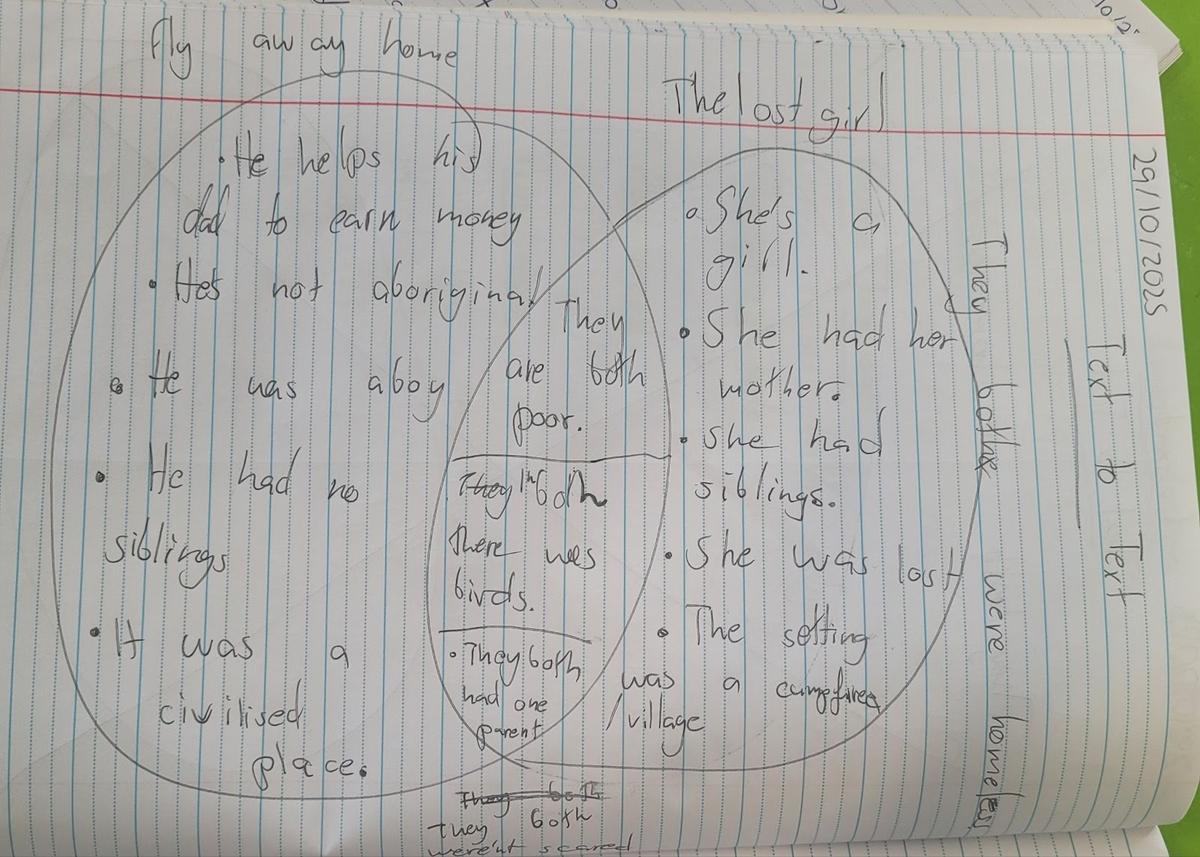 fly away home
The lost girl
29/10/2025
Text to Text
• He helps his
dad to earn money
• He's not aboriginal
• He was a boy
• He had no
siblings
• It was a
civilised
place.
They
are both
poor.
They In both
there was
birds.
• They both
had one
parent
• She's a
girl.
• She had her
mother.
• She had
siblings.
• She was lost
• The setting
was a campfire
/village
They both were homeless
They both
They both
weren't scared